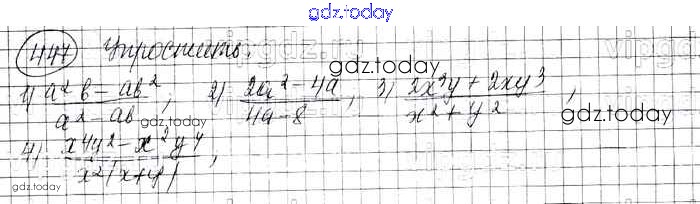 gdz.today
447 Упростить. vipgdz.ru vipgdz
1) (a²b - ab²)/(a² - ab), 2) (2a² - 4a)/(4a - 8), 3) (2x³y + 2xy³)/(x² + y²),
gdz.today gdz.today gdz.today
4) (x⁴y² - x²y⁴)/(x²(x+y)),
gdz.today